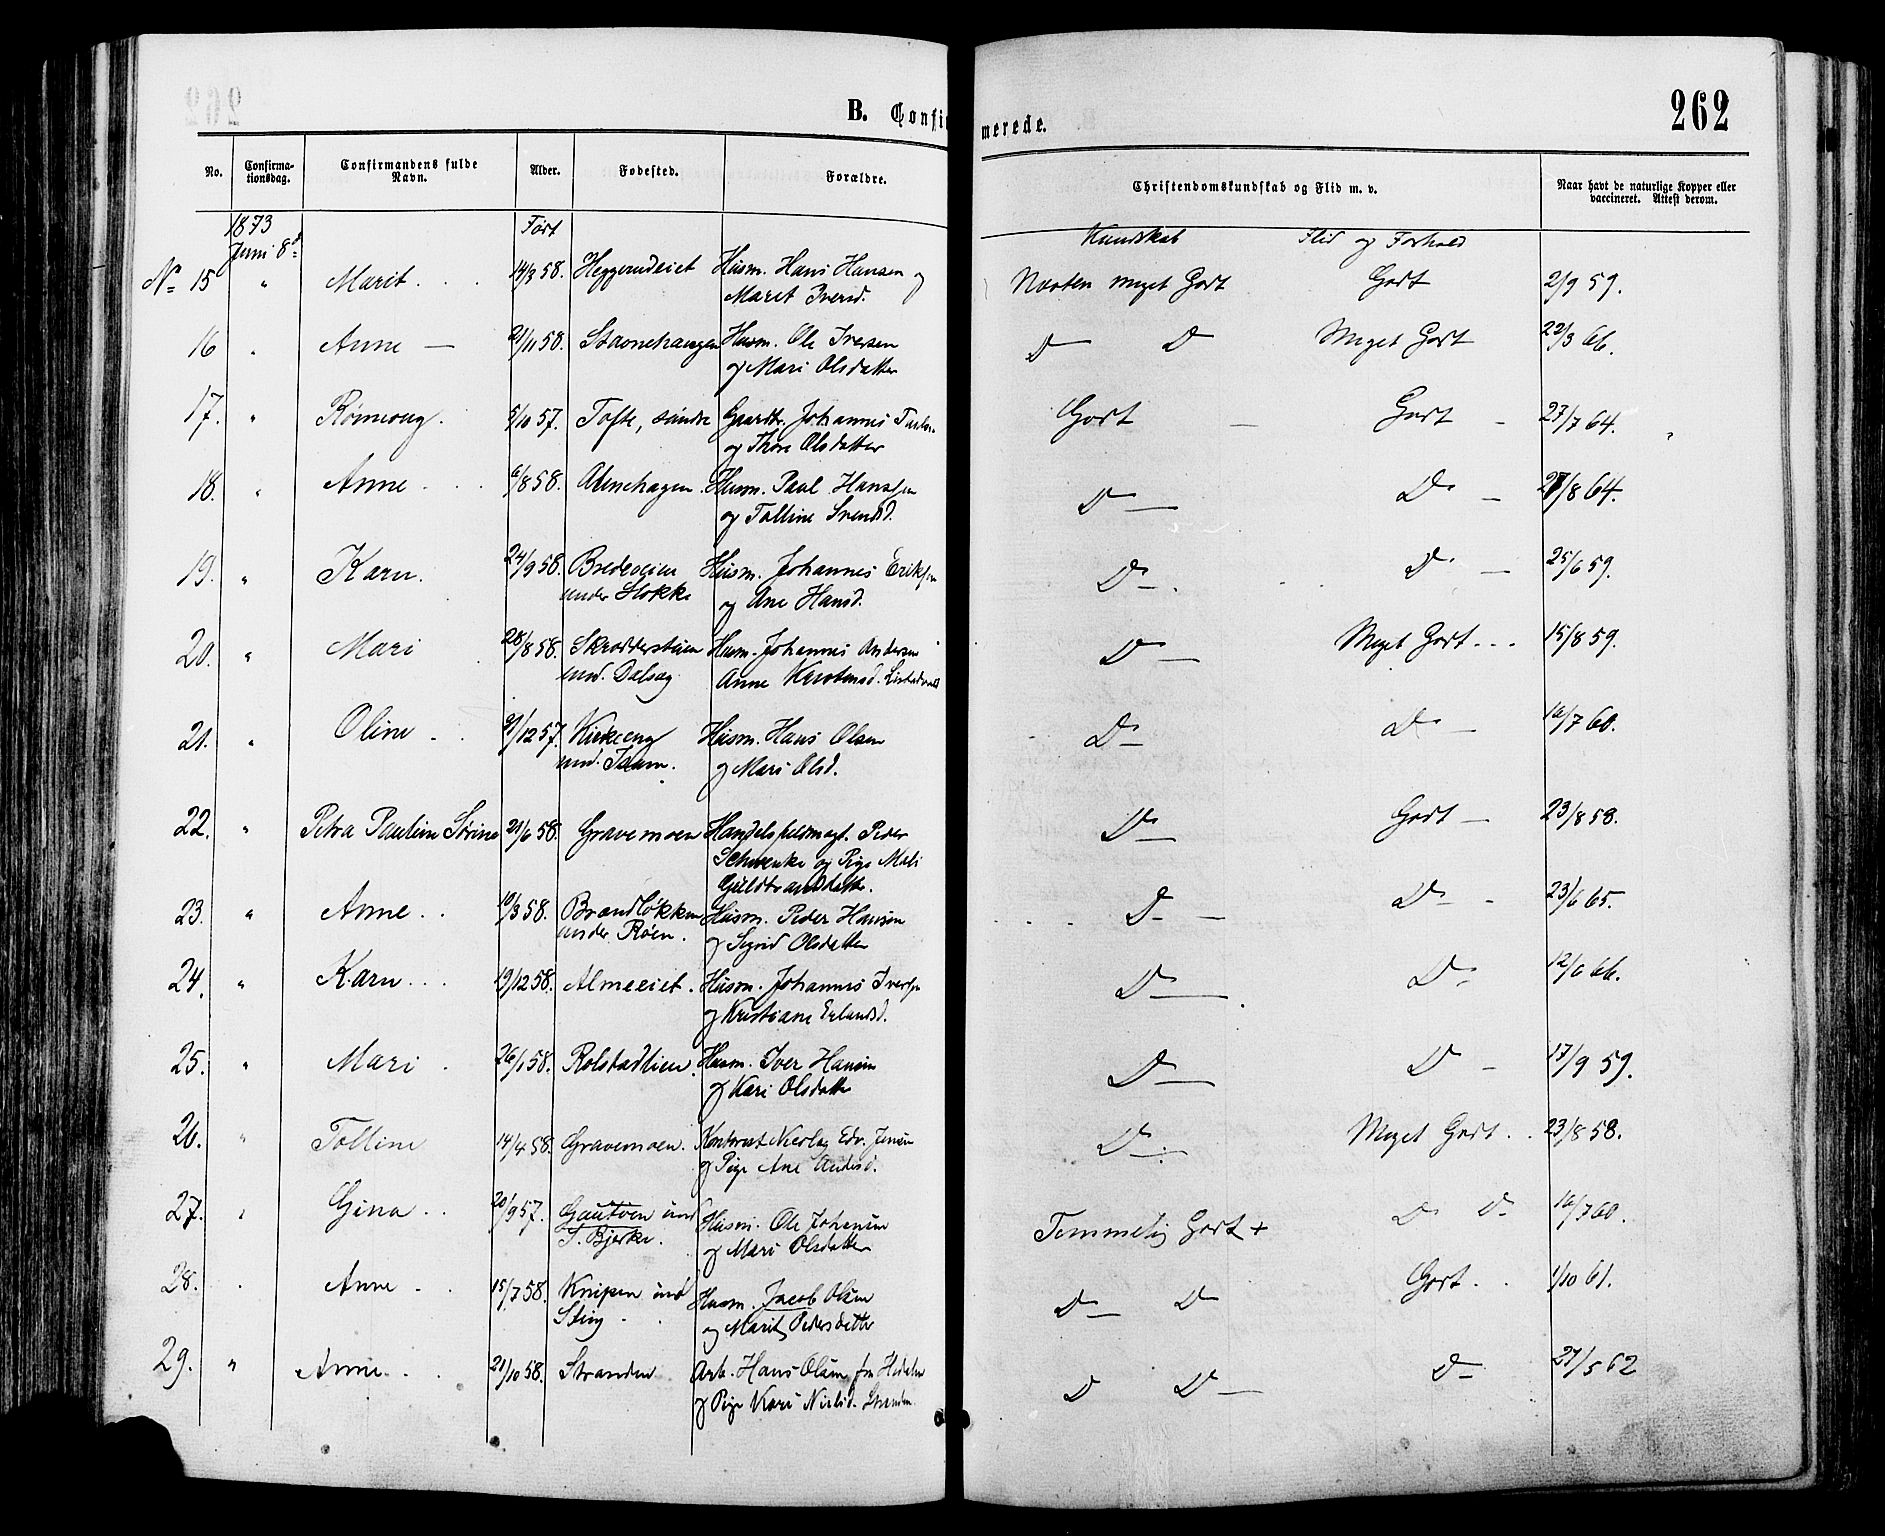 262
B. Confirmerede.
No. Confirmationsdag. Confirmandens fulde Navn. Alder. Fødested. Forældre. Christendomskundskab og Flid m. v. Naar havt de naturlige Kopper eller vaccineret. Attest derom.
1873 Født Kundskab Flid og Forhold
Juni 8d
No 15 " Marit 14/3 58. Heggerudeiet Husm. Hans Hansen og Næsten meget Godt Godt 2/9 59.
Marit Iversd.
16 " Anne 21/11 58. Stavnehaugen Husm. Ole Iversen D D Meget Godt 22/3 66.
og Mari Olsdatter
17. " Rønnoug 5/10 57. Tofte, søndre Gaardbr. Johannes Godt Godt 27/7 64.
og Thore Olsdatter
18. " Anne 6/8 58. Husm. Paul Hansen D D 27/8 64.
ogOlline Svendsd.
19. " Karn 24/9 58. Bredeveien Husm. Johannes Eriksen D D 25/6 59.
under Stokke og Ane Hansd.
20. " Mari 28/8 58. Skrædderstuen Husm. Johannes Andersen D Meget Godt 15/8 59.
und. Dalseg Anne Karstensd.
21. " Oline /12 57. Kirkeeng Husm. Hans Olsen D D 16/7 60.
und. og Mari Olsd.
22. " Petra Pauline Sørine 21/6 58. Gravemoen Handelsfuldmægt. Peder D Godt 23/8 58.
Schwenke og Pige Mali
Guldbrandsdatter.
23. " Anne 10/3 58. Brændløkken Husm. Peder Hansen D D 23/6 65.
under Røen. og Sigrid Olsdatter
24. " Karn 19/12 58. Almeeiet. Husm. Johannes Iversen D D 12/6 66.
og Kristiane Erlandsd.
25. " Mari 26/1 58. Rolstadlien. Husm. Iver Hansen D D 17/9 59.
og Kari Olsdatter
26. " Tolline 14/4 58. Gravemoen. Kontorist Nicolay Edv. Jensen D Meget Godt 23/8 58.
og Pige Ane Andersd.
27. " Gina 20/9 57. und Husm. Ole Johansen Temmelig Godt + D D 16/7 60.
S. Bjørke. og Mari Olsdatter
28. " Anne 15/7 58. Knipen und Husm. Jacob Olsen D D Godt 1/10 61.
Stieg og Marit Pedersdatter
29. " Anne 21/10 58. Stranden Arb. Hans Olsen fra Hedalen D D D 27/5 62
og Pige Kari Nielsd. Stranden